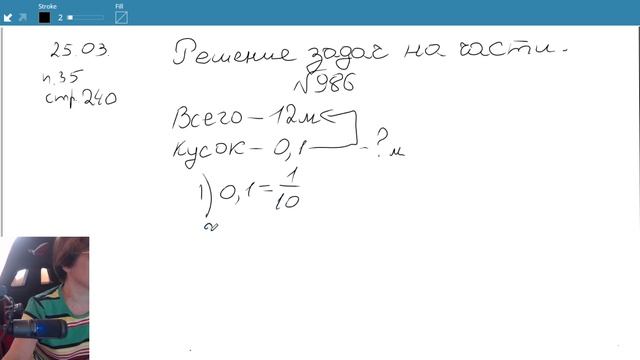 Stroke
Fill
2
25.03.
п.35
стр.240
Решение задач на части.
№986
Всего – 12м
Кусок – 0,1 – ? м
1) 0,1 = 1/10
2